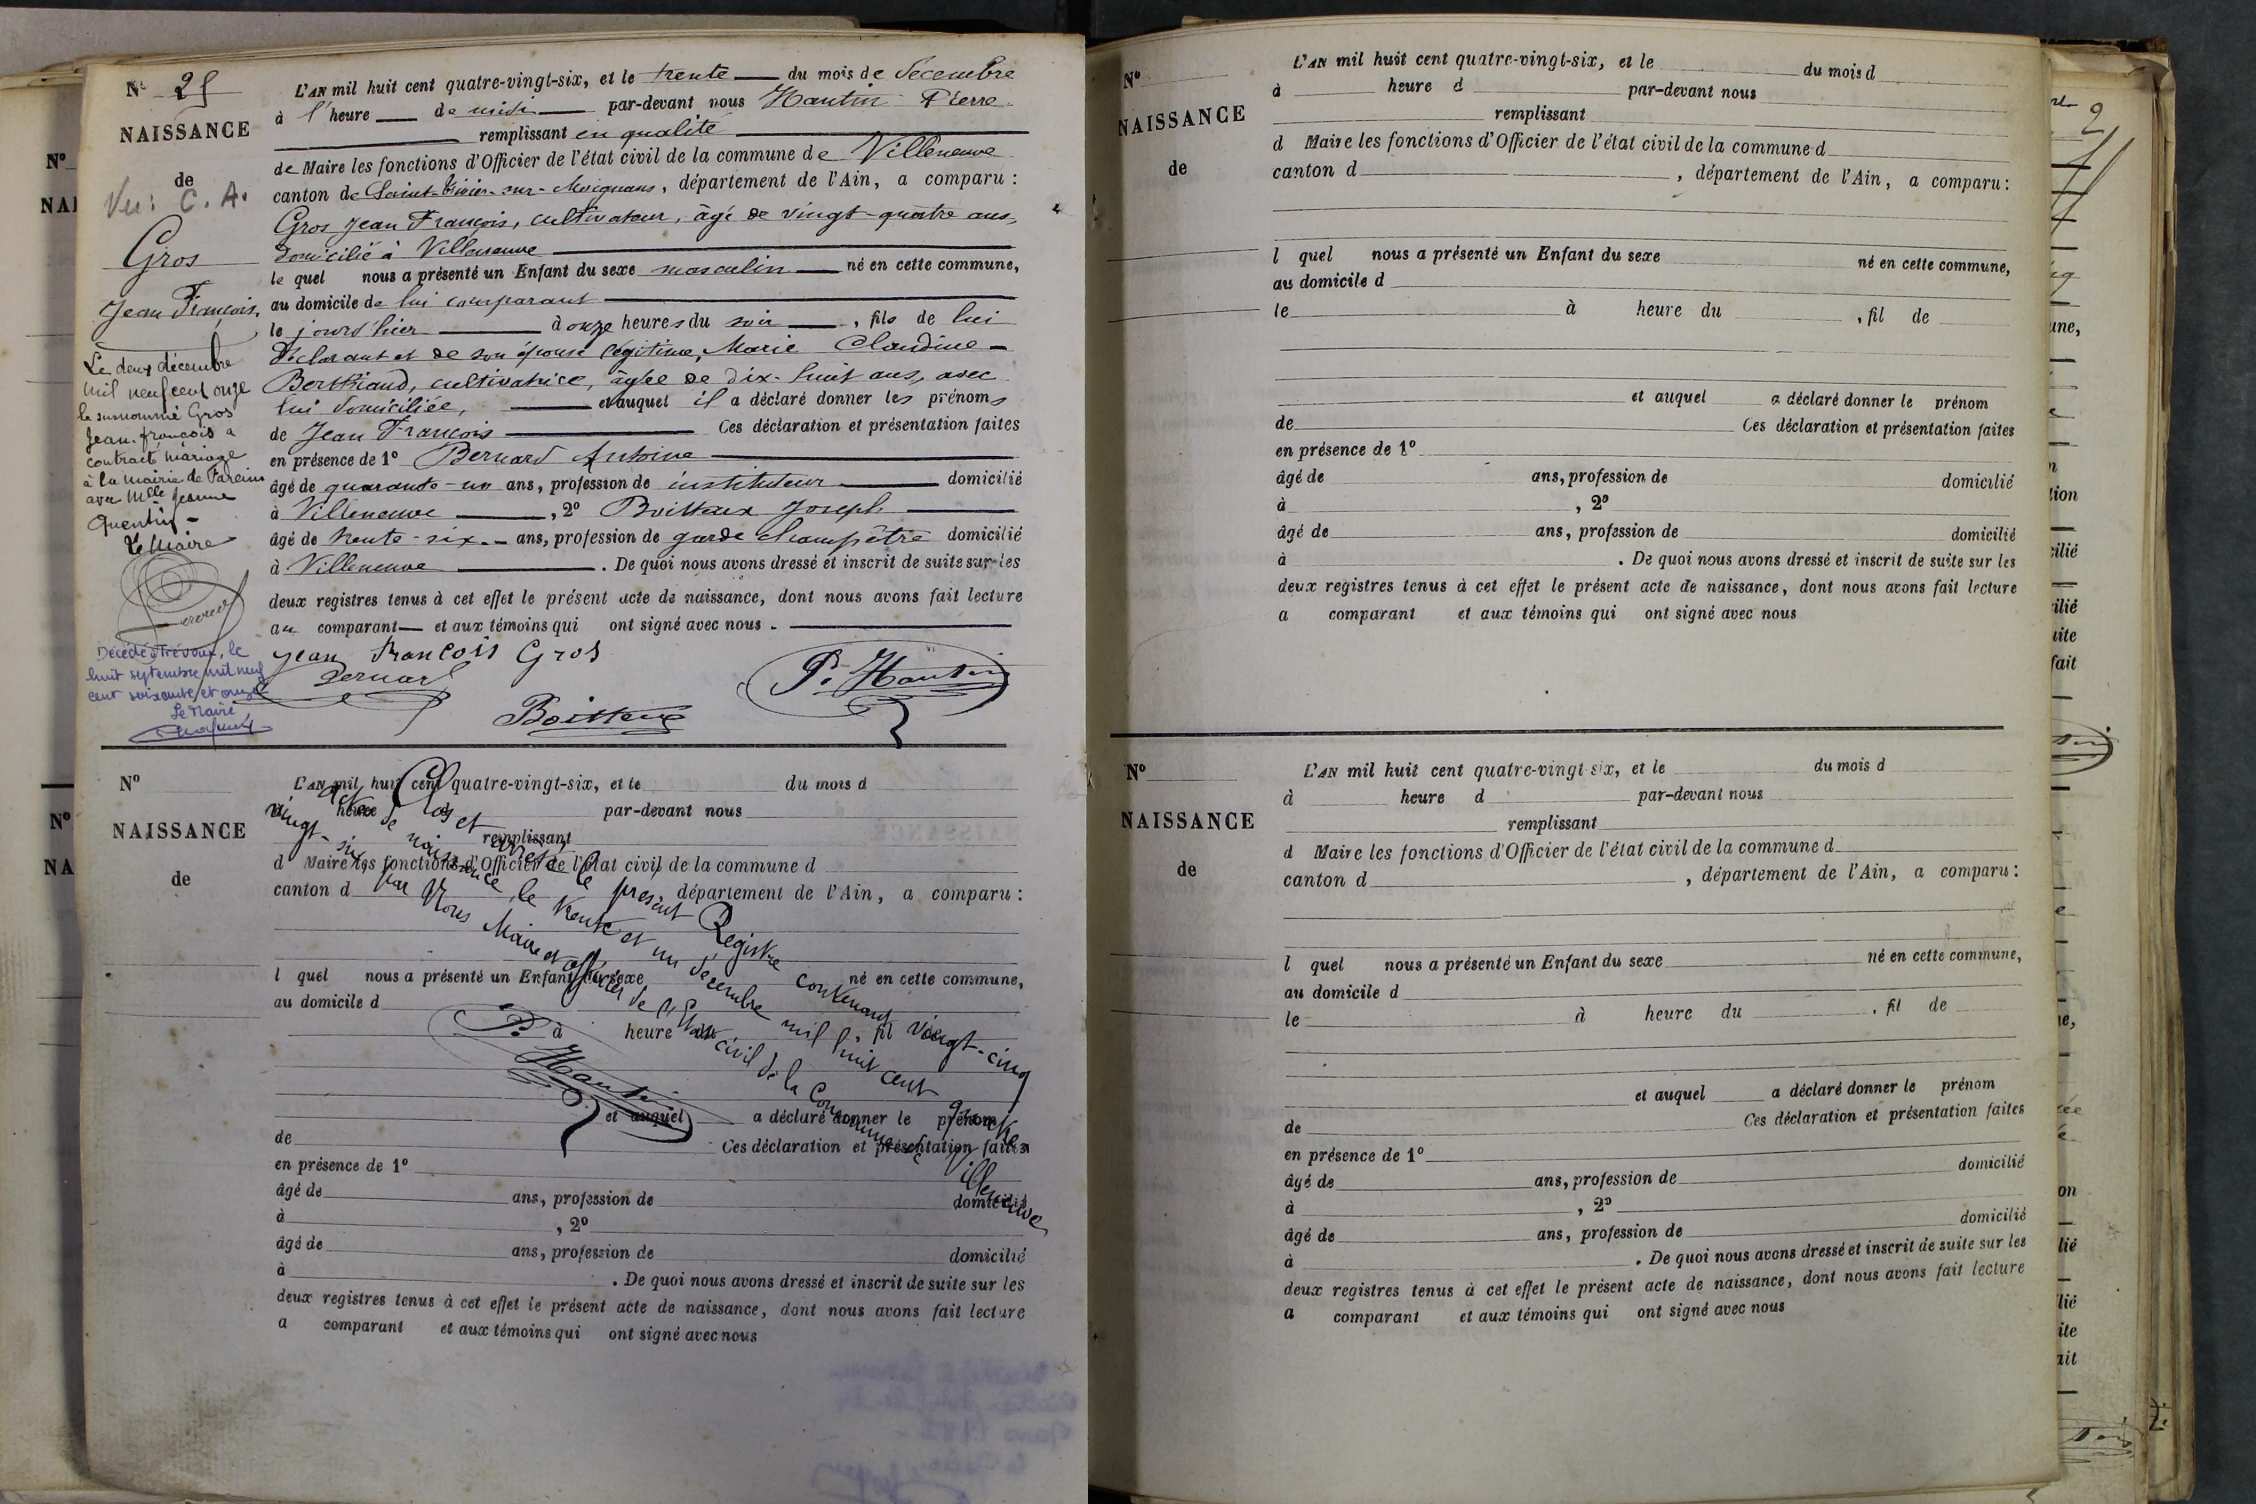 Nº 25
NAISSANCE
de
Vu: C. A.
Gros
Jean François,
Le deux décembre
mil neuf cent onze
le surnommé Gros
Jean-françois a
contracté mariage
à la mairie de Fareins
avec Mlle Jeanne
Quentin -
Le Maire
Décédé à Trévoux, le
huit septembre mil neuf
cent soixante et onze
Le Maire
L'AN mil huit cent quatre-vingt-six, et le trente du mois de décembre
à l'heure de midi par-devant nous Hantin Pierre
remplissant en qualité
de Maire les fonctions d'Officier de l'état civil de la commune de Villeneuve
canton de Saint-Trivier-sur-Moignans, département de l'Ain, a comparu :
Gros Jean François, cultivateur, âgé de vingt-quatre ans,
domicilié à Villeneuve
le quel nous a présenté un Enfant du sexe masculin né en cette commune,
au domicile de lui comparant
le jourd'hier à onze heures du soir, fils de lui
déclarant et de son épouse légitime, Marie Claudine
Berthiaud, cultivatrice, âgée de dix-huit ans, avec
lui domiciliée, et auquel il a déclaré donner les prénoms
de Jean François Ces déclaration et présentation faites
en présence de 1º Bernard Antoine
âgé de quarante-un ans, profession de instituteur domicilié
à Villeneuve, 2º Boitteux Joseph
âgé de trente-six ans, profession de garde champêtre domicilié
à Villeneuve. De quoi nous avons dressé et inscrit de suite sur les
deux registres tenus à cet effet le présent acte de naissance, dont nous avons fait lecture
au comparant et aux témoins qui ont signé avec nous.
Jean François Gros
Bernard
P. Hantin
Boitteux
Nº
NAISSANCE
de
L'AN mil huit cent quatre-vingt-six, et le du mois d
à heure d par-devant nous
remplissant
d Maire les fonctions d'Officier de l'état civil de la commune d
canton d , département de l'Ain, a comparu :
l quel nous a présenté un Enfant du sexe né en cette commune,
au domicile d
à heure du , fil
et auquel a déclaré donner le prénom
de Ces déclaration et présentation faites
en présence de 1º
âgé de ans, profession de domicilié
à , 2º
âgé de ans, profession de domicilié
à . De quoi nous avons dressé et inscrit de suite sur les
deux registres tenus à cet effet le présent acte de naissance, dont nous avons fait lecture
a comparant et aux témoins qui ont signé avec nous
Clos et arrêté le présent Registre contenant vingt-cinq
actes de naissance, le trente et un décembre mil huit cent quatre
vingt-six, par Nous Maire et officier de l'Etat civil de la Commune de Villeneuve
P. Hantin
Nº
NAISSANCE
de
L'AN mil huit cent quatre-vingt-six, et le du mois d
à heure d par-devant nous
remplissant
d Maire les fonctions d'Officier de l'état civil de la commune d
canton d , département de l'Ain, a comparu :
l quel nous a présenté un Enfant du sexe né en cette commune,
au domicile d
le à heure du , fil de
et auquel a déclaré donner le prénom
de Ces déclaration et présentation faites
en présence de 1º
âgé de ans, profession de domicilié
à , 2º
âgé de ans, profession de domicilié
à . De quoi nous avons dressé et inscrit de suite sur les
deux registres tenus à cet effet le présent acte de naissance, dont nous avons fait lecture
a comparant et aux témoins qui ont signé avec nous
Nº
NAISSANCE
de
L'AN mil huit cent quatre-vingt-six, et le du mois d
à heure d par-devant nous
remplissant
d Maire les fonctions d'Officier de l'état civil de la commune d
canton d , département de l'Ain, a comparu :
l quel nous a présenté un Enfant du sexe né en cette commune,
au domicile d
le à heure du , fil de
et auquel a déclaré donner le prénom
de Ces déclaration et présentation faites
en présence de 1º
âgé de ans, profession de domicilié
à , 2º
âgé de ans, profession de domicilié
à . De quoi nous avons dressé et inscrit de suite sur les
deux registres tenus à cet effet le présent acte de naissance, dont nous avons fait lecture
a comparant et aux témoins qui ont signé avec nous